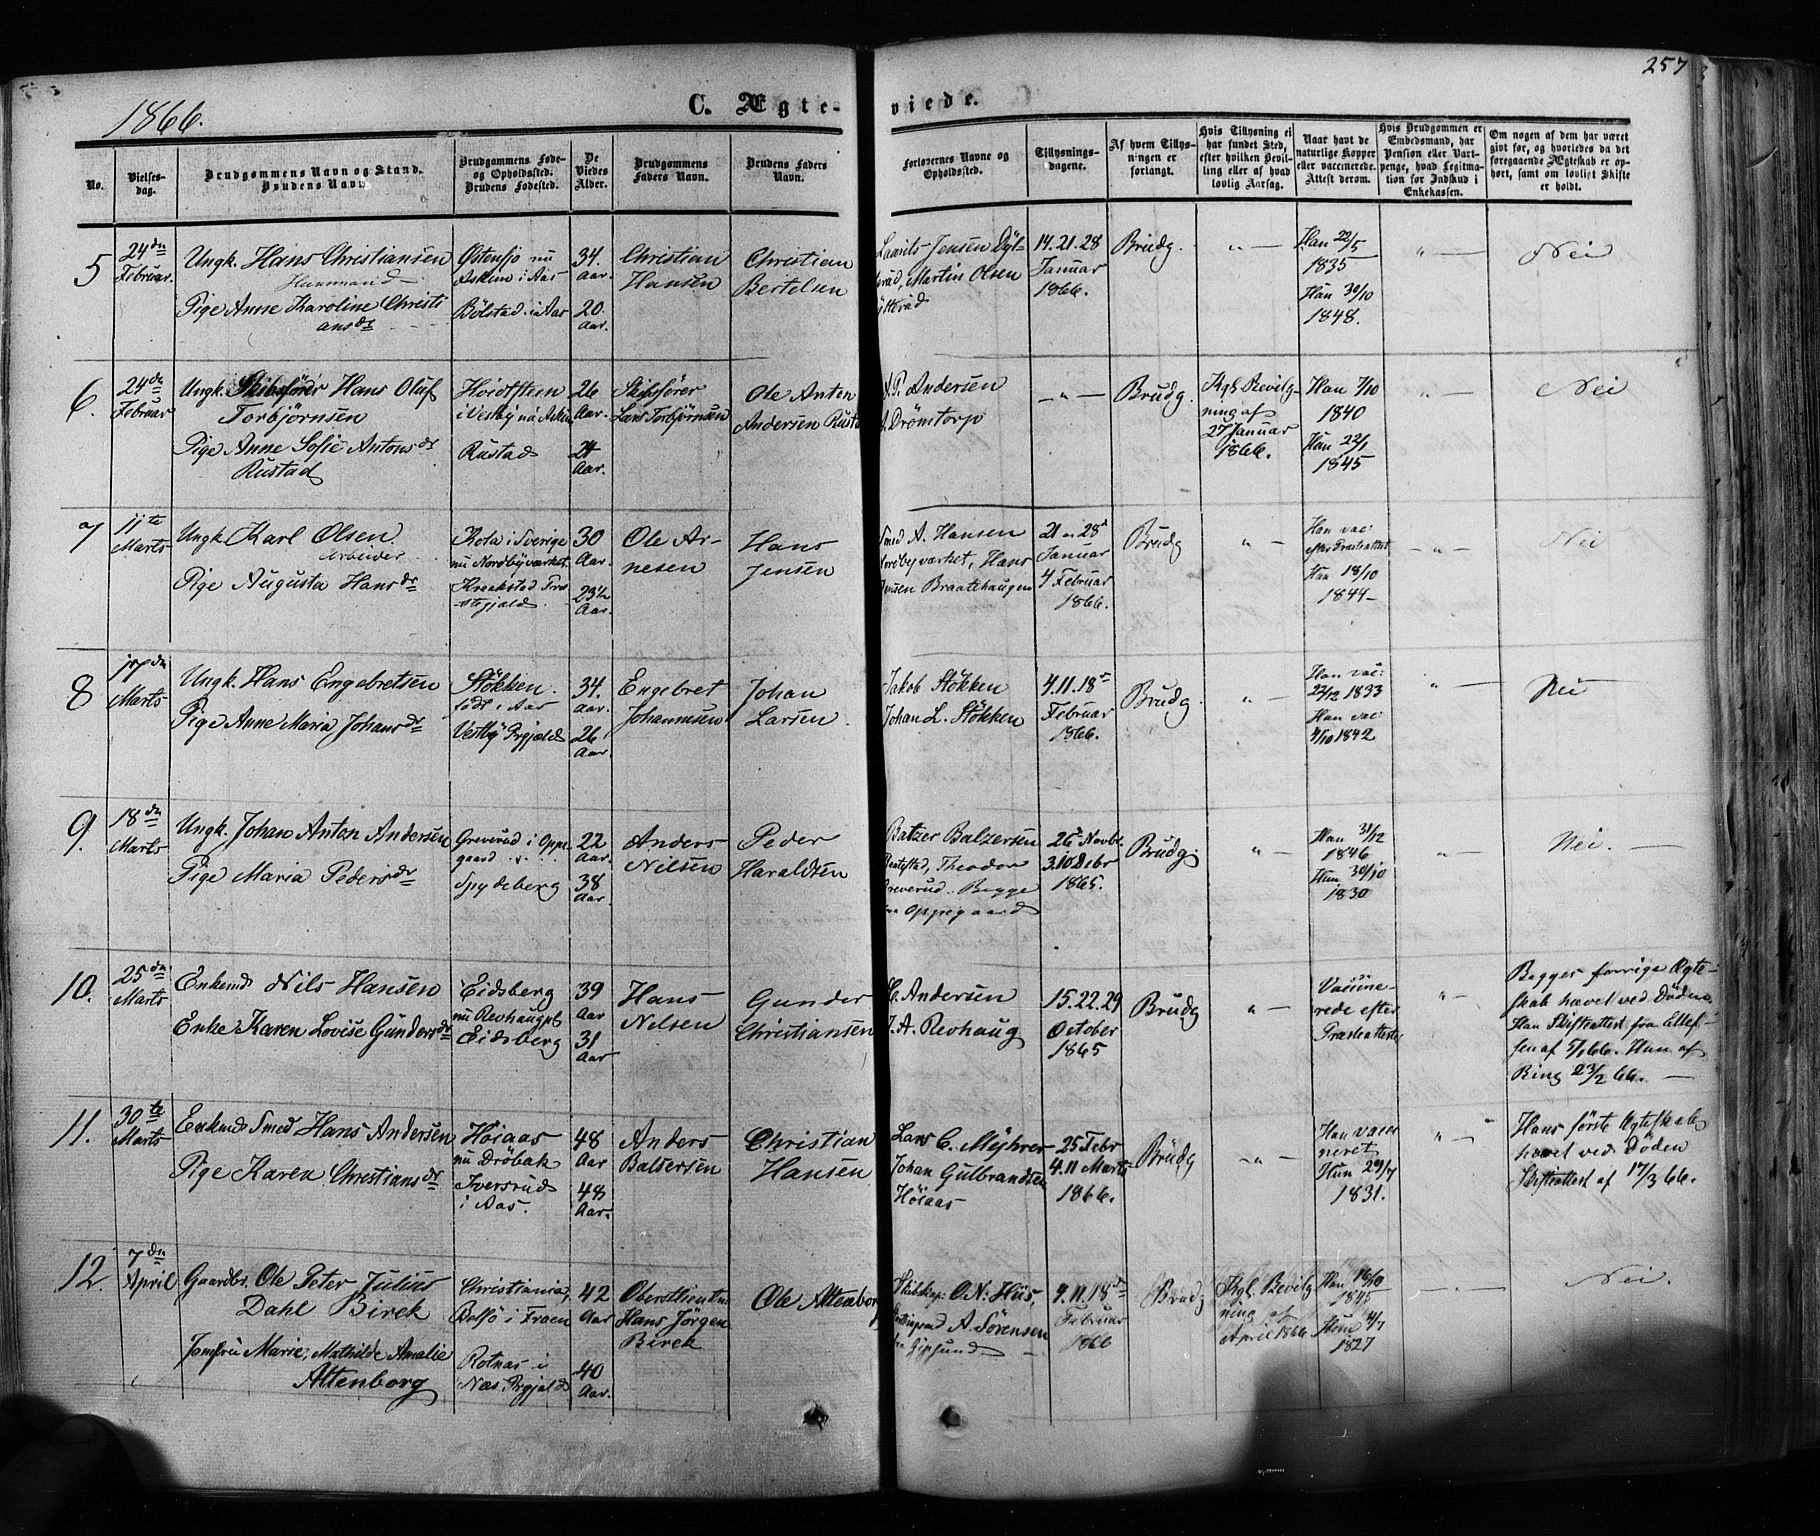 257
1866.
C. Ægte-
viede.
No.
Vielses-
dag.
Brudgommens Navn og Stand.
Brudens Navn.
Brudgommens Føde-
og Opholdssted.
Brudens Fødested.
De
Viedes
Alder.
Brudgommens
Faders Navn.
Brudens Faders
Navn.
Forlovernes Navne og
Opholdssted.
Tillysnings-
dagene.
Af hvem Tillys-
ningen er
forlangt.
Hvis Tillysning ei
har fundet Sted,
efter hvilken Bevil-
ling eller af hvad
lovlig Aarsag.
Naar havt de
naturlige Kopper
eller vaccinerede.
Attest derom.
Hvis Brudgommen er
Embedsmand, har
Pension eller Vart-
penge, hvad Legitima-
tion for Indskud i
Enkekassen.
Om nogen af dem har været
gift før, og hvorledes da det
foregaaende Ægteskab er op-
hørt, samt om lovligt Skifte
er holdt.
5
24dn
Februar.
Ungk. Hans Christiansen
Huusmand
Pige Anne Karoline Christi
ansdr
Østensjø nu
Askim i Aas
Bølstad i Aas
34.
Aar.
20.
Aar.
Christian
Hansen
Christian
Bertelsen
Laurits Jensen
Martin Olsen
14. 21. 28
Januar
1866.
Brudg.
" —
Han 22/5
1835
Hun 30/10
1848.
" —
Nei
6.
24dn
Februar
Ungk. Skibsfører Hans Oluf
Torbjørnsen
Pige Anne Sofie Antonsdr
Rustad
Hvidtsteen
i Vestby nu Askim
Rustad
26
Aar.
21
Aar.
Skibsfører
Lars Torbjørnsen
Ole Anton
Andersen Rustad
A. P. Andersen
A. Drømtorp
— " —
Brudg.
Kgl. Bevilg-
ning af
27 Januar
1866.
Han 7/10
1840
Hun 22/1
1845
Nei
7
11te
Marts
Ungk. Karl Olsen
Arbeider
Pige Augusta Hansdr
Kola i Sverige
nu Nordbyværket
Kraakstad Præ-
stegjeld
30
Aar.
23½
Aar.
Ole Ar-
nesen
Hans
Jensen
Smed A. Hansen
Nordbyværket, Hans
Jensen Braatehaugen
21 28d
Januar
4 Februar
1866.
Brudg
" —
Han vac:
efter Præsteattest
Hun 18/10
1844
- " -
Nei
8
17dn
Marts
Ungk. Hans Engebretsen
Pige Anne Maria Johansdr
Støkken
født i Aas
Vestby Prgjeld
34.
Aar.
26
Aar
Engebret
Johannesen
Johan
Larsen
Jakob Støkken
Johan L. Støkken
4. 11. 18d
Februar
1866.
Brudg
" —
Han vac:
22/12 1833
Hun vac:
4/10 1842
" —
Nei
9.
18dn
Marts
Ungk. Johan Anton Andersen
Pige Maria Pedersdr
Greverud i Oppe-
gaard
Spydeberg
22
Aar.
38
Aar.
Anders
Nilsen
Peder
Haraldsen
Batzer Balzersen
Theodor
Greverud. Begge
fra Oppegaard
26 Novbr
3. 10 Debr
1865.
Brudg.
" —
Han 31/12
1846
Hun 30/10
1830
" —
Nei. —
10.
25dn
Marts
Enkemd Nils Hansen
Enke Karen Lovise Gundersdr
Eidsberg
nu Revhaugpl
Eidsberg
39
Aar
31
Aar
Hans
Nilsen
Gunder
Christiansen
C. Andersen
J. A. Revhaug
15. 22. 29
October
1865
Brudg
" —
Vaccine-
rede efter
Præsteattester
" —
Begges forrige Ægte-
skab hævet ved Døden.
Han Skifteattest fra Ellef-
sen af 5/1 66. Hun af
Bing 23/2 66. —
11.
30te
Marts
Enkmd Smed Hans Andersen
Pige Karen Christiansdr
Høiaas
nu Drøbak
Iversrud
i Aas.
48
Aar
48
Aar.
Anders
Baltsersen
Christian
Hansen
Lars C. Myhrer
Johan Gulbrandsen
Høiaas
25 Febr
4. 11 Marts
1866
Brudg
- " —
Han vacci
neret
Hun 29/7
1831.
" —
Hans første Ægteskab
hævet ved Døden
Skifteattest af 17/3 66.
12.
7dn
April
Gaardbr. Ole Peter Julius
Dahl Birch
Jomfru Marie, Mathilde Amalie
Altenborg
Christiania,
Belsjø i Froen
Rotnæs i
Næs Prgjeld
42
Aar
40
Aar.
Oberstlieutn
Hans Jørgen
Birch
Ole Altenborg
O. N. Hiis,
A. Sørensen
4. 11. 18de
Februar
1866
Brudg
Kgl. Bevilg
ning af
April 1866
Han 16/10
1845
Hun 4/7
1827
- " —
Nei.